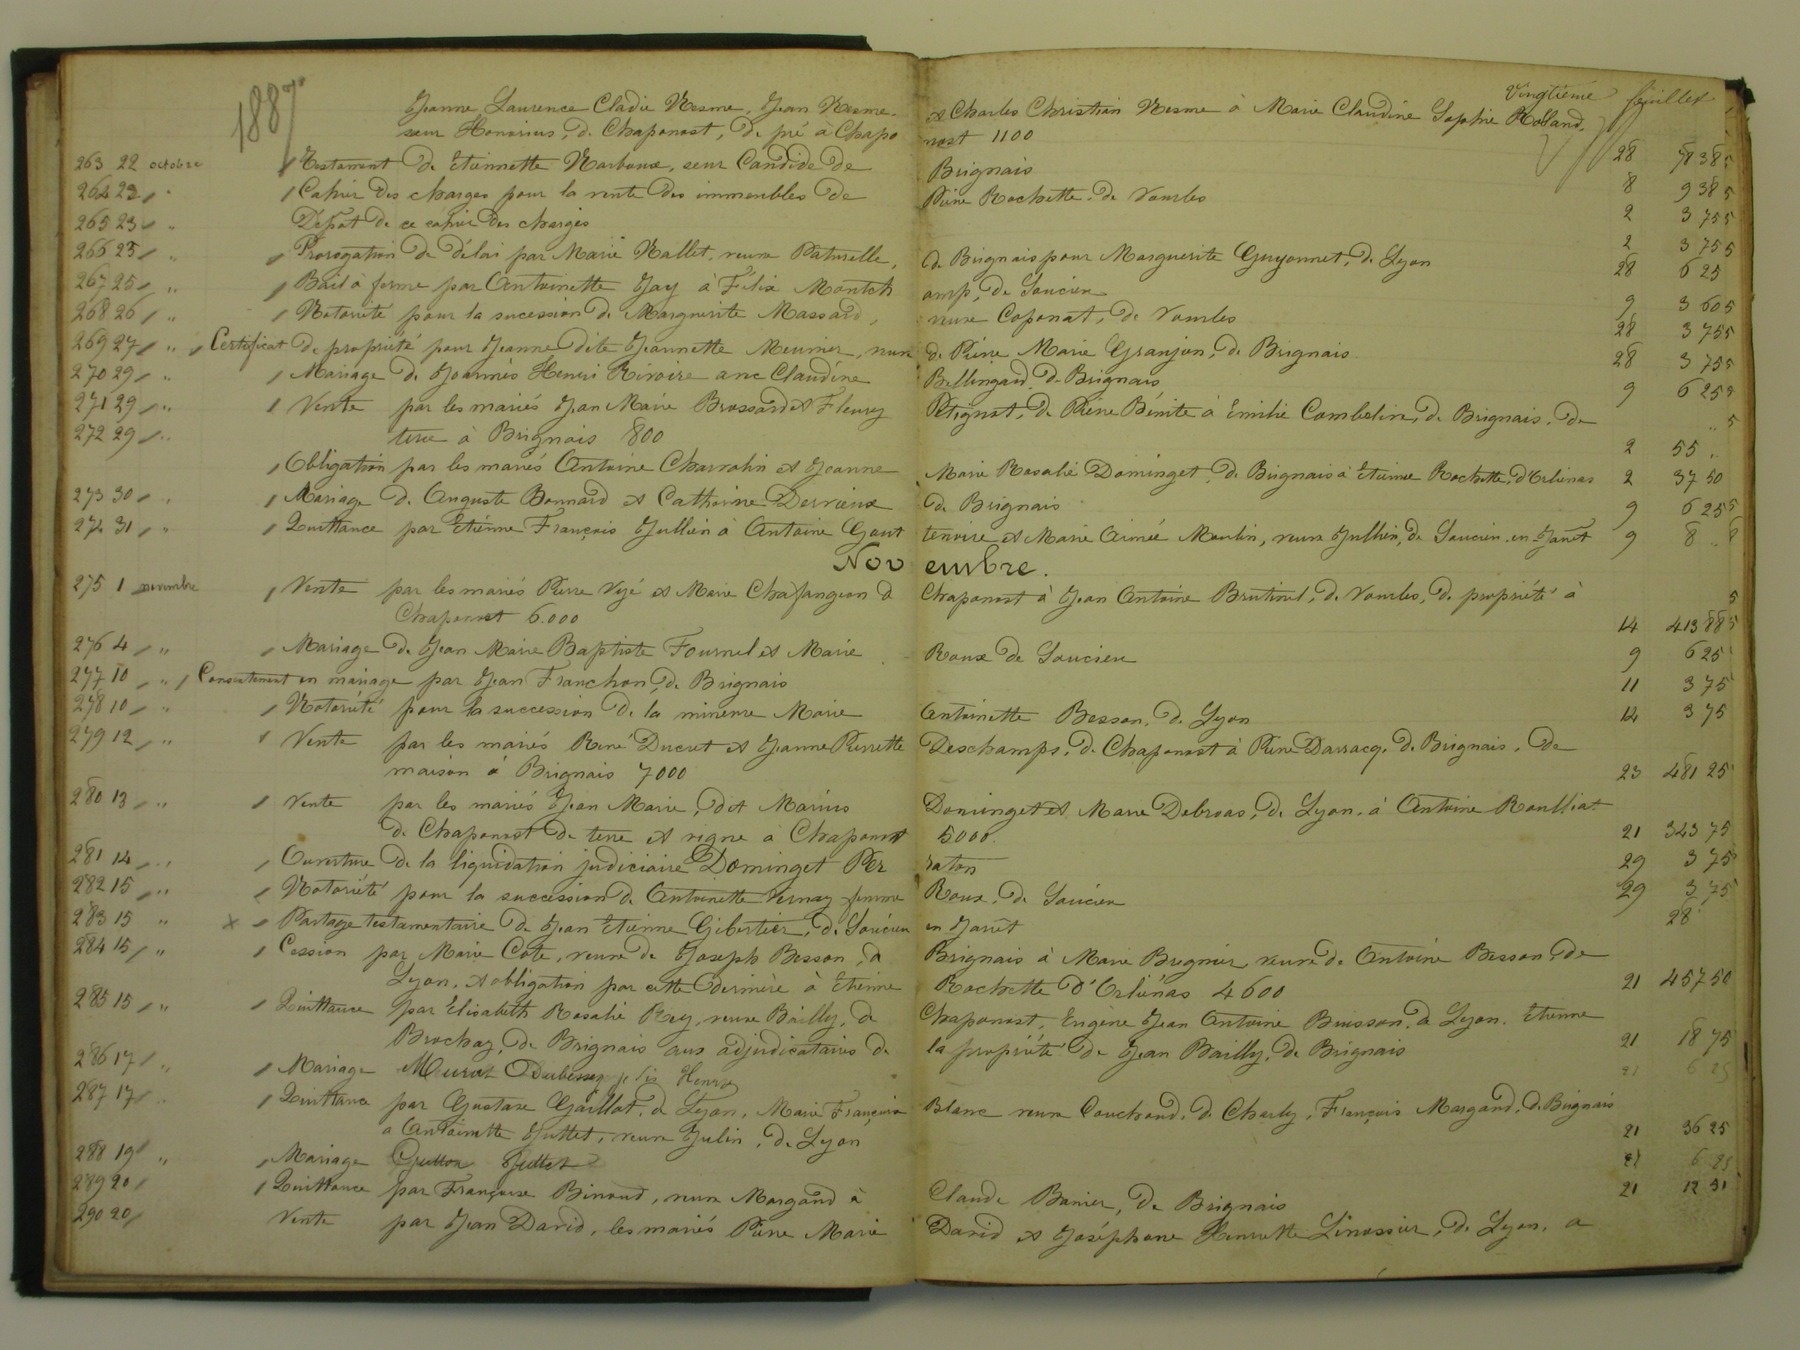 1887
Vingtième feuillet
Jeanne Laurence Cladie Nesme, Jean Nesme, & Charles Christian Nesme à Marie Claudine Sophie Roland,
sœur Honorius, de Chaponost, de pré à Chaponost 1100 28 78 385
263 22 octobre Testament de Etiennette Narboux, sœur Candide de Brignais 8 9 385
264 23 " Cahier des charges pour la vente des immeubles de Pierre Rochette, de Vourles 2 3 755
265 23 " Dépôt de ce cahier des charges 2 3 755
266 25 " Prorogation de délai par Marie Nallet, veuve Paturelle, de Brignais pour Marguerite Guyonnet, de Lyon 28 6 25
267 25 " Bail à ferme par Antoinette Jay à Félix Montchamp, de Soucieu 9 3 605
268 26 " Notoriété pour la sucession de Marguerite Massard, veuve Coponat, de Vourles 28 3 755
269 27 " Certificat de propriété pour Jeanne dite Jeannette Meunier, veuve de Pierre Marie Granjon, de Brignais 28 3 755
270 29 " Mariage de Joannès Henri Rivoire avec Claudine Bellingard, de Brignais 9 6 255
271 29 " Vente par les mariés Jean Marie Brossard & Fleury Pétignat, de Pierre Bénite à Emilie Combeline, de Brignais, de
272 29 " terre à Brignais 800 2 55 "
Obligation par les mariés Antoine Charralin & Jeanne Marie Rosalie Dominget, de Brignais à Etienne Rochette, d'Orliénas 2 37 50
273 30 " Mariage de Auguste Bonnard & Catherine Dervieux de Brignais 9 6 255
274 31 " Quittance par Etiénne François Jullien à Antoine Gouttenoire & Marie Aimée Moulin, veuve Jullien, de Soucieu-en-Jarret 9 8 "
Novembre.
275 1 novembre Vente par les mariés Pierre Vizé & Marie Chaffangeon de Chaponost à Jean Antoine Brutinel, de Vourles, de propriété à
Chaponost 6.000 14 413 885
276 4 " Mariage de Jean Marie Baptiste Fournel & Marie Roux de Soucieu 9 6 25
277 10 " Consentement en mariage par Jean Franchon, de Brignais 11 3 75
278 10 " Notoriété pour la succession de la mineure Marie Antoinette Besson, de Lyon 14 3 75
279 12 " Vente par les mariés René Ducret & Jeanne Pierrette Deschamps, de Chaponost à Pierre Darracq, de Brignais, de
maison à Brignais 7000 23 481 25
280 13 " Vente par les mariés Jean Marie, dit Marius Dominget & Marie Debroas, de Lyon, à Antoine Roulliat
de Chaponost de terre & vigne à Chaponost 5000. 21 343 75
281 14 " Ouverture de la liquidation judiciaire Dominget Perraton 29 3 75
282 15 " Notoriété pour la succession de Antoinette Vernay femme Roux, de Soucieu 29 3 75
283 15 " x Partage testamentaire de Jean Etienne Gibertier, de Soucieu en Jarret 28
284 15 " Cession par Marie Cote, veuve de Joseph Besson, de Brignais à Marie Bregnier veuve de Antoine Besson, de
Lyon, & obligation par cette dernière à Etienne Rochette d'Orliénas 4600 21 457 50
285 15 " Quittance par Elisabeth Rosalie Rey, veuve Bailly, de Chaponost, Eugène Jean Antoine Buisson, de Lyon, Etienne
Brochay, de Brignais aux adjudicataires de la propriété de Jean Bailly, de Brignais 21 18 75
286 17 " Mariage Meurot Dubessey je dis Henry 21 6 25
287 17 " Quittance par Gustave Gaillot, de Lyon, Marie Françoise Blanc veuve Couchoud, de Charly, François Margand, de Brignais
à Antoinette Juttet, veuve Julin, de Lyon 21 36 25
288 19 " Mariage Juttet 21 6 25
289 20 Quittance par Françoise Binoud, veuve Margand à Claude Banier, de Brignais 21 12 31
290 20 Vente par Jean David, les mariés Pierre Marie David & Joséphine Henriette Linossier, de Lyon, à